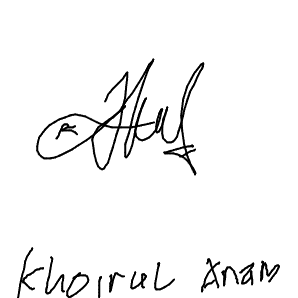 Khoirul Anam